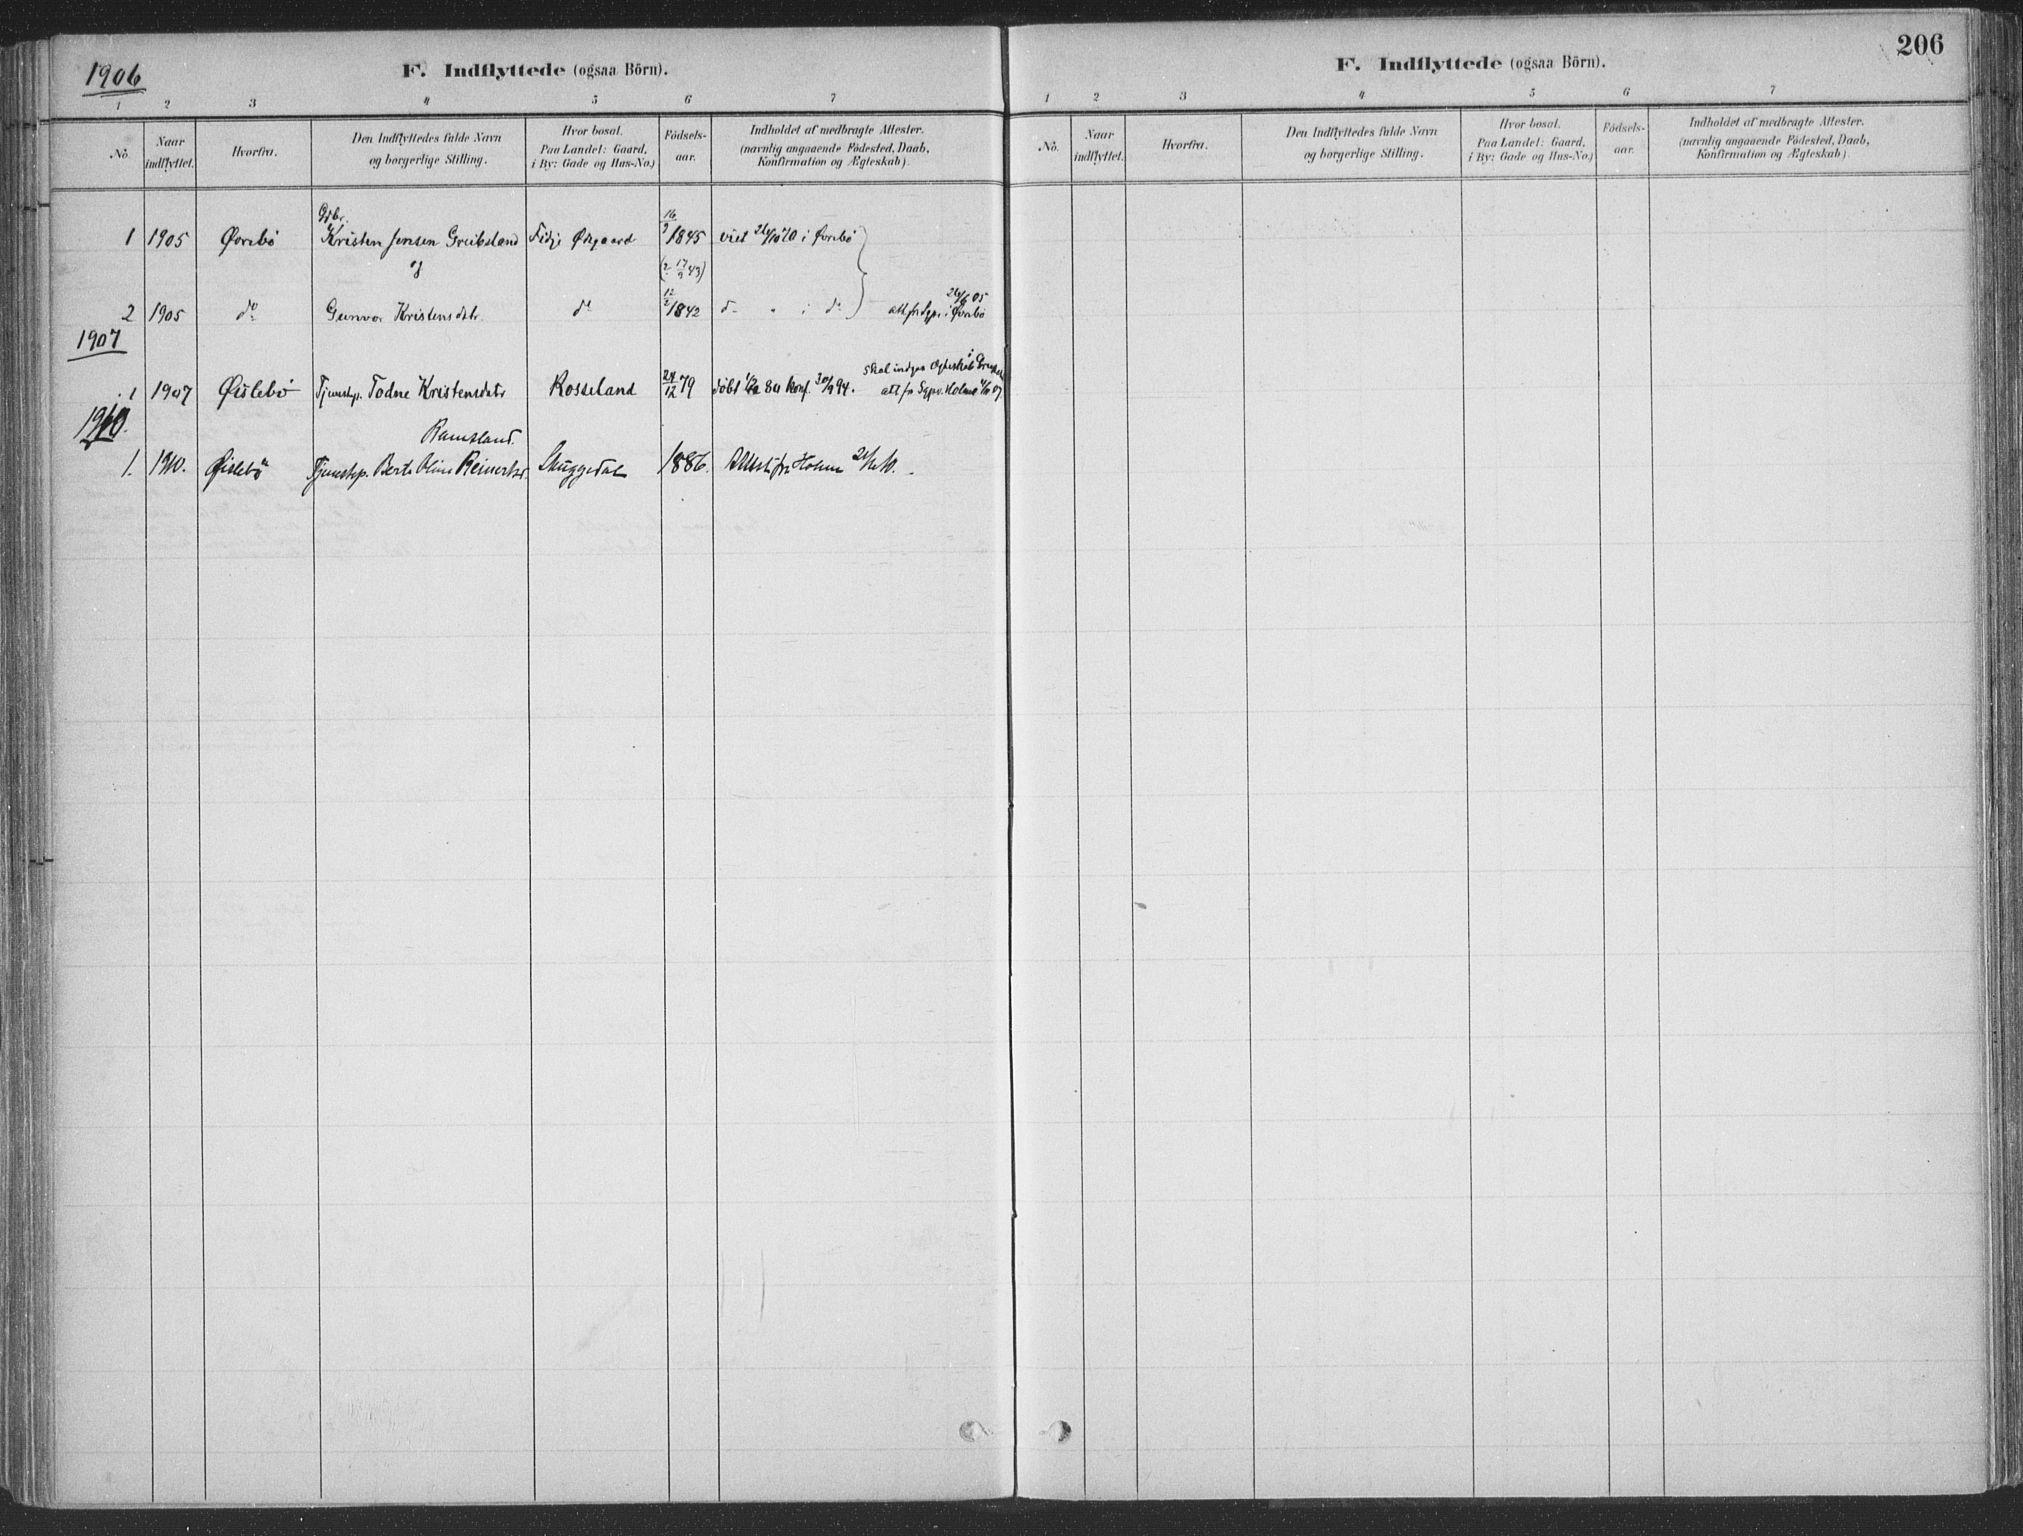 1906
F. Indflyttede (ogsaa Börn).
1 2 3 4 5 6 7
No. Naar indflyttet. Hvorfra. Den Indflyttedes fulde Navn og borgerlige Stilling. Hvor bosat. Paa Landet: Gaard, i By: Gade og Hus-No.) Födsels-aar. Indholdet af medbragte Attester. (navnlig angaaende Födested, Daab, Konfirmation og Ægteskab).
Gbr.
1 1905 Øvrebö Kristen Jensen Greibsland Fidje Ødegaard 16/9 1845 viet 26/10 70 i Øvrebö
og
2 1905 do Gunvor Kristensdtr. do 12/2 1842 d. " i do att. fr Sgpr. i Øvrebö 26/6 05
1907
1 1907 Øislebö Tjenestep. Todne Kristensdatr Rosseland 24/12 79 döbt 80 konf. 30/9 94. att fr Sgpr. Holme 07
skal indgaa Ægteskab i
1910.
Ramsland.
1. 1910. Øislebö Tjenestep. Berte Oline Reinertsd. Skuggedal 1886. Attest fra Holme
206
F. Indflyttede (ogsaa Börn).
1 2 3 4 5 6 7
No. Naar indflyttet. Hvorfra. Den Indflyttedes fulde Navn og borgerlige Stilling. Hvor bosat. Paa Landet: Gaard, i By: Gade og Hus-No.) Födsels-aar. Indholdet af medbragte Attester. (navnlig angaaende Födested, Daab, Konfirmation og Ægteskab).